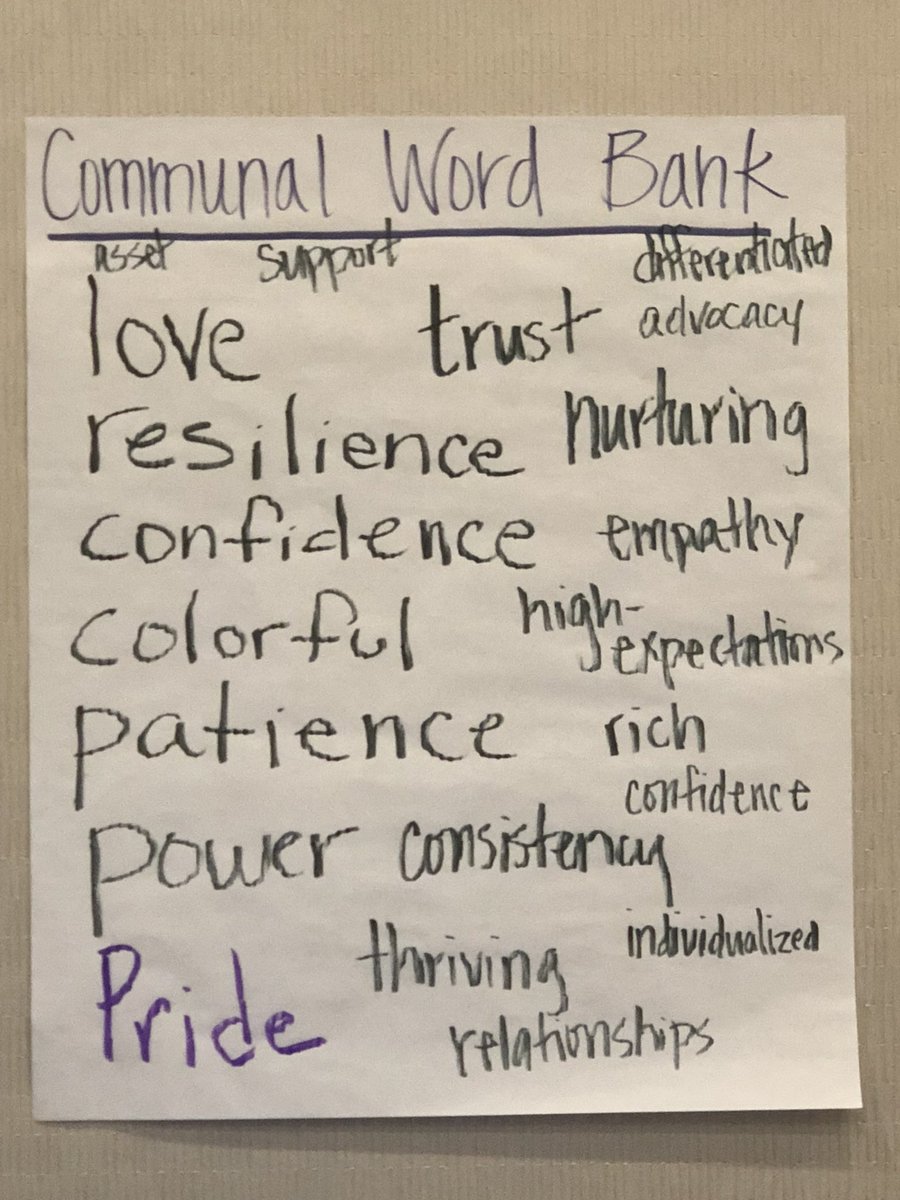 Communal Word Bank
asset support differentiated
love trust advocacy
resilience nurturing
confidence empathy
colorful high-
expectations
patience rich
confidence
power consistency
Pride thriving individualized
relationships